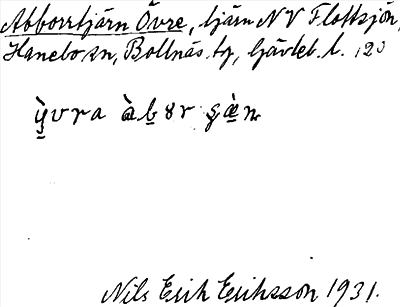 Abborrtjärn Övre, tjärn NV Flottsjön,
Hanebo sn, Bollnäs tg, Gävleb. l. 120
ỳ̠vra àb̠ər ʂæ̠̀n
Nils Erik Eriksson 1931.